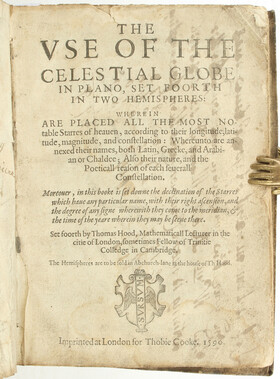 THE
VSE OF THE
CELESTIAL GLOBE
IN PLANO, SET FOORTH
IN TWO HEMISPHERES:
WHEREIN
ARE PLACED ALL THE MOST NO-
table Starres of heauen, according to their longitude, lati-
tude, magnitude, and constellation: Whereunto are an-
nexed their names, both Latin, Greeke, and Arabi-
an or Chaldee; Also their nature, and the
Poeticall reason of each seuerall
Constellation.
Moreouer, in this booke is set downe the declination of the Starres
which haue any particular name, with their right ascension, and
the degree of any signe wherewith they came to the meridian, &
the time of the yeare wherein they may be seene there.
Set foorth by Thomas Hood, Mathematicall Lecturer in the
citie of London, sometimes Fellow of Trinitie
Colledge in Cambridge.
The Hemispheres are to be sold in Abchurch lane at the house of Th. Hood.
Imprinted at London for Thobie Cooke. 1590.